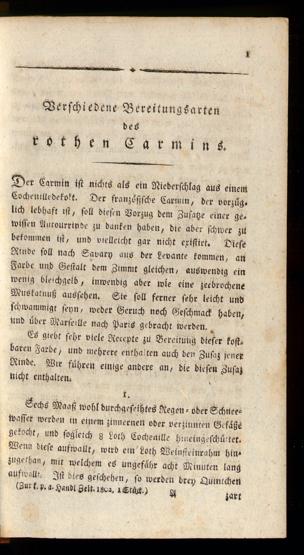 1
Verschiedene Bereitungsarten
des
rothen Carmins.
Der Carmin ist nichts als ein Niederschlag aus einem
Cochenilledekokt. Der französische Carmin, der vorzüg-
lich lebhaft ist, soll diesen Vorzug dem Zusatze einer ge-
wissen Autourrinde zu danken haben, die aber schwer zu
bekommen ist, und vielleicht gar nicht existirt. Diese
Rinde soll nach Savary aus der Levante kommen, an
Farbe und Gestalt dem Zimmt gleichen, auswendig ein
wenig bleichgelb, inwendig aber wie eine zerbrochene
Muskatnuß aussehen. Sie soll ferner sehr leicht und
schwammigt seyn, weder Geruch noch Geschmack haben,
und über Marseille nach Paris gebracht werden.
Es giebt sehr viele Recepte zu Bereitung dieser kost-
baren Farbe, und mehrere enthalten auch den Zusaz jener
Rinde. Wir führen einige andere an, die diesen Zusaz
nicht enthalten.
1.
Sechs Maaß wohl durchgeseihtes Regen- oder Schnee-
wasser werden in einem zinnernen oder verzinnten Gefäße
gekocht, und sogleich 8 Loth Cochenille hineingeschüttet.
Wenn diese aufwallt, wird ein Loth Weinsteinrahm hin-
zugethan, mit welchem es ungefähr acht Minuten lang
aufwallt. Ist dies geschehen, so werden drey Quintchen
(Zur k. p. a. Handl Zeit. 1802, 1 Stück.) A zart